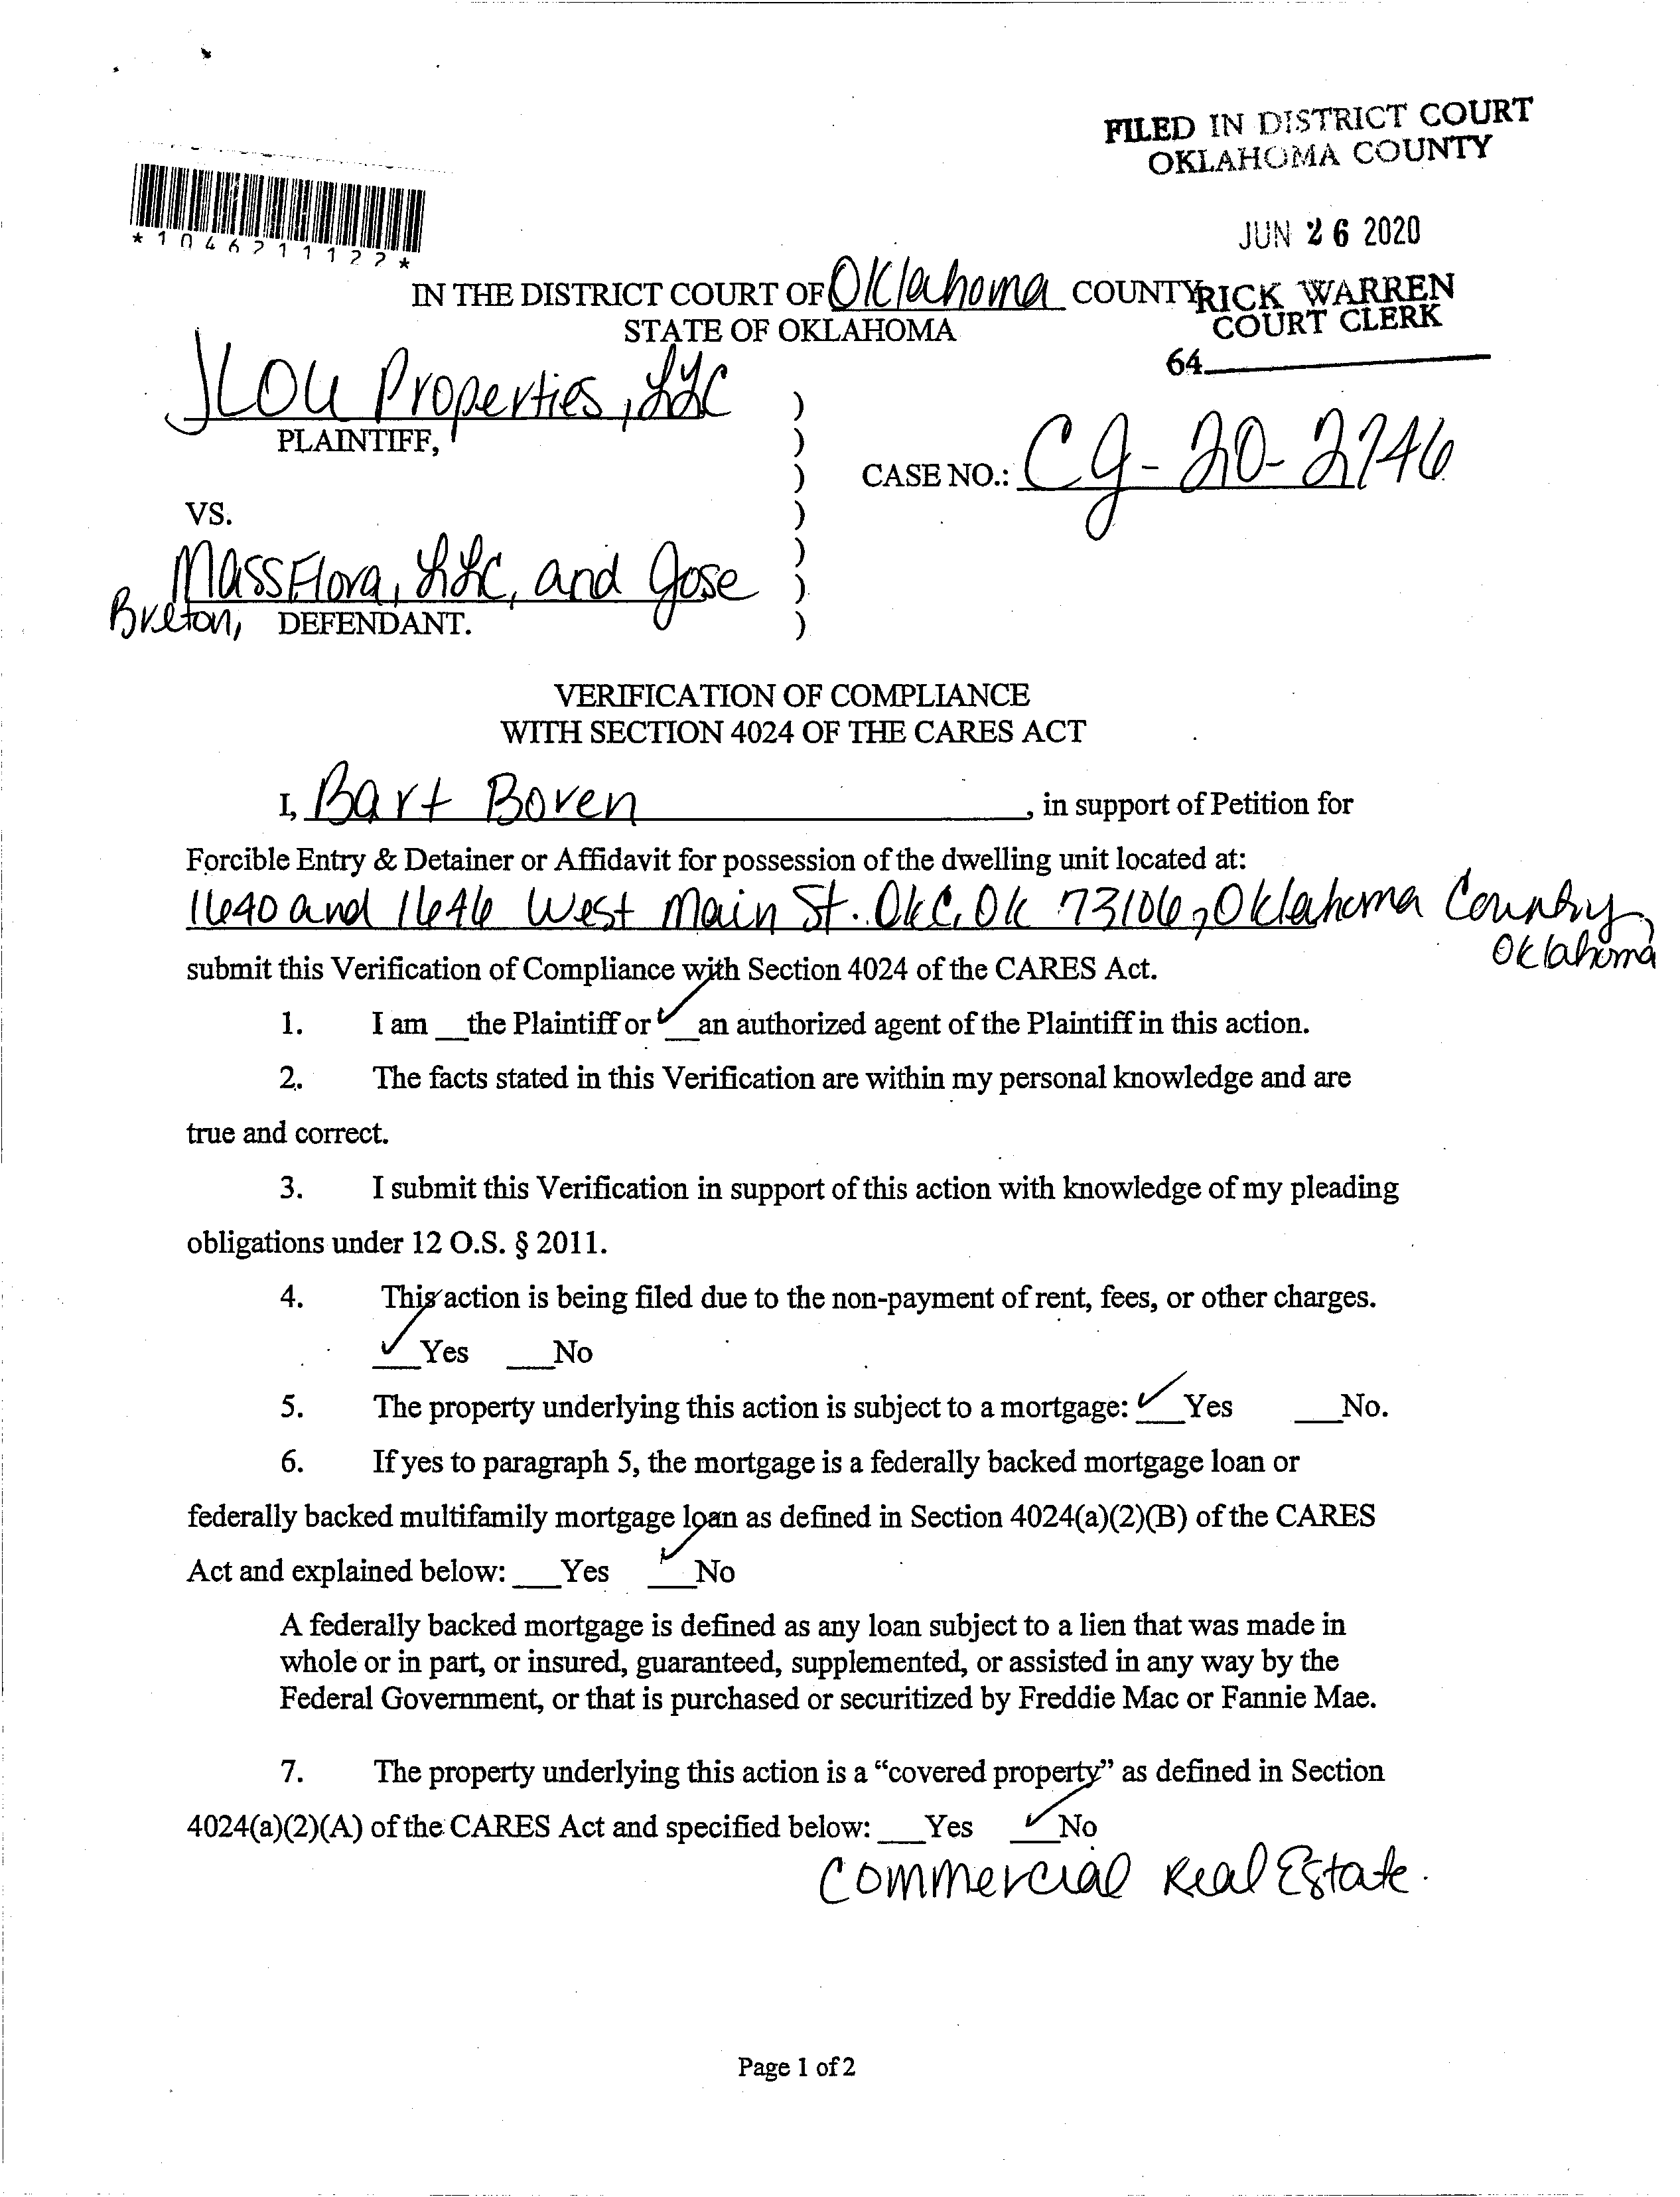 FILED IN DISTRICT COURT
OKLAHOMA COUNTY
JUN 26 2020
* 1 0 4 6 2 1 1 1 2 2 *
IN THE DISTRICT COURT OF Oklahoma COUNTY
RICK WARREN
STATE OF OKLAHOMA
COURT CLERK
64
JLOU Properties, LLC )
PLAINTIFF, )
) CASE NO.: CJ-20-2746
VS. )
)
MassFlora, LLC, and Jose )
Breton, DEFENDANT. )
VERIFICATION OF COMPLIANCE
WITH SECTION 4024 OF THE CARES ACT
I, Bart Boren, in support of Petition for
Forcible Entry & Detainer or Affidavit for possession of the dwelling unit located at:
1640 and 1646 West Main St. OKC, OK 73106, Oklahoma County,
Oklahoma
submit this Verification of Compliance with Section 4024 of the CARES Act.
1. I am __the Plaintiff or ✓ an authorized agent of the Plaintiff in this action.
2. The facts stated in this Verification are within my personal knowledge and are
true and correct.
3. I submit this Verification in support of this action with knowledge of my pleading
obligations under 12 O.S. § 2011.
4. This action is being filed due to the non-payment of rent, fees, or other charges.
✓ Yes ___No
5. The property underlying this action is subject to a mortgage: ✓ Yes ___No.
6. If yes to paragraph 5, the mortgage is a federally backed mortgage loan or
federally backed multifamily mortgage loan as defined in Section 4024(a)(2)(B) of the CARES
Act and explained below: ___Yes ✓ No
A federally backed mortgage is defined as any loan subject to a lien that was made in
whole or in part, or insured, guaranteed, supplemented, or assisted in any way by the
Federal Government, or that is purchased or securitized by Freddie Mac or Fannie Mae.
7. The property underlying this action is a “covered property” as defined in Section
4024(a)(2)(A) of the CARES Act and specified below: ___Yes ✓ No
Commercial Real Estate.
Page 1 of 2